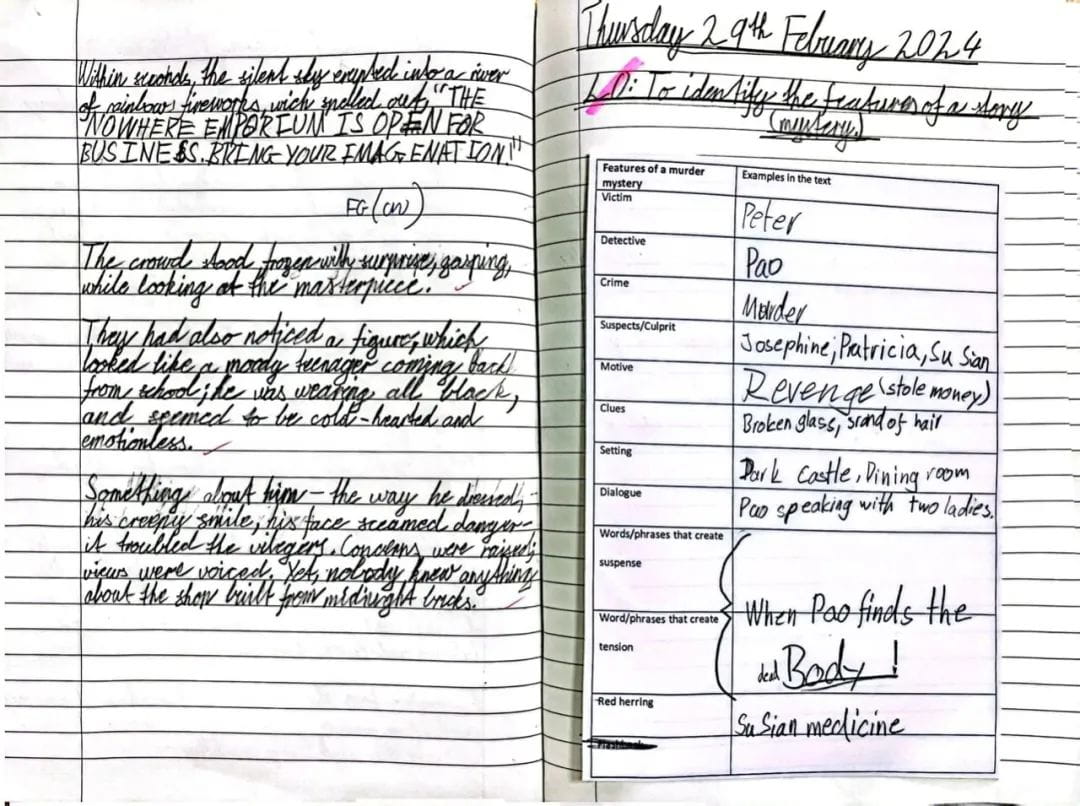 Within seconds, the silent sky erupted into a river
of rainbow fireworks, wich spelled out, "THE
NOWHERE EMPORIUM IS OPEN FOR
BUSINESS. BRING YOUR IMAGENATION!"
FG (CW)
The crowd stood frozen with surprise, gasping,
while looking at the masterpiece.
They had also noticed a figure, which
looked like a moody teenager coming back
from school; he was wearing all black,
and seemed to be cold-hearted and
emotionless.
Something about him - the way he dressed,
his creepy smile, his face screamed danger -
it troubled the vilegers. Concerns were raised;
views were voiced. Yet, nobody knew anything
about the shop built from midnight bricks.
Thursday 29th February 2024
LO: To identify the features of a story
(mystery.)
Features of a murder mystery Examples in the text
Victim Peter
Detective Pao
Crime Murder
Suspects/Culprit Josephine, Patricia, Su Sian
Motive Revenge (stole money)
Clues Broken glass, srand of hair
Setting Dark Castle, Dining room
Dialogue Pao speaking with two ladies.
Words/phrases that create
suspense
Word/phrases that create When Pao finds the
tension dead Body!
Red herring Su Sian medicine